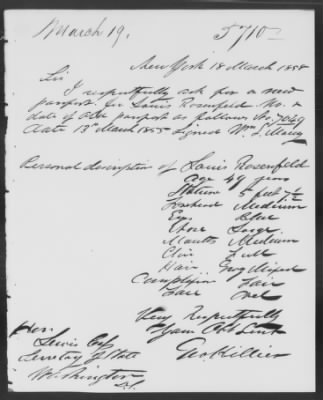 March 19.
5710
New York 18 March 1858
Sir
I respectfully ask for a new
passport for Louis Rosenfeld No. &
date of old passport as follows No. 7049
date 13th March 1855 signed Wm. L. Marcy
Personal description of Louis Rosenfeld
age 49 years
Stature 5 feet 7 1/2
Forehead Medium
Eyes Blue
Nose Large
Mouth Medium
Chin Full
Hair Grey Mixed
Complexion Fair
Face Oval
Very Respectfully
Your Obt Servt
Hon.
Lewis Cass
Geo. Killier
Secretary of State
Washington